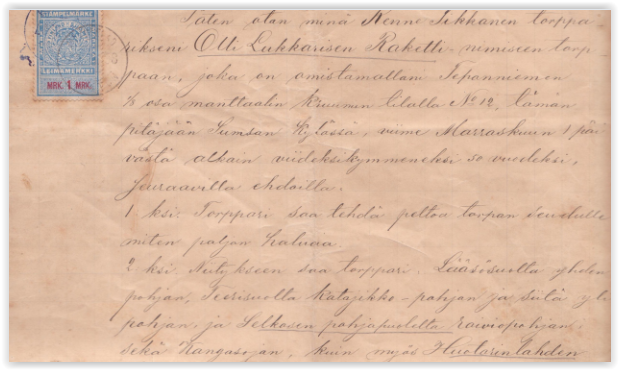 STÄMPELMÄRKE
LEIMAMERKKI
MRK. 1 MRK.
Täten otan minä Renne Tikkanen torppa
rikseni Olli Lukkarisen Raketti-nimiseen torp
paan, joka on omistamallani Tepanniemen
osa manttaalin Kruunun tilalla No 12, tämän
pitäjään Sumsan Kylässä, viime Marraskuun 1 päi
västä alkain viideksikymmeneksi 50 vuodeksi,
seuraavilla ehdoilla.
1 ksi: Torppari saa tehdä peltoa torpan seudulle
miten paljon haluaa.
2 ksi Niitykseen saa torppari. yhden
pohjan, Teerisuolla Katajikko-pohjan ja siitä yli
pohjan, ja Selkosen pohjapuolelta raiviopohjan
sekä Kangasojan, kuin myös Huotarinlahden